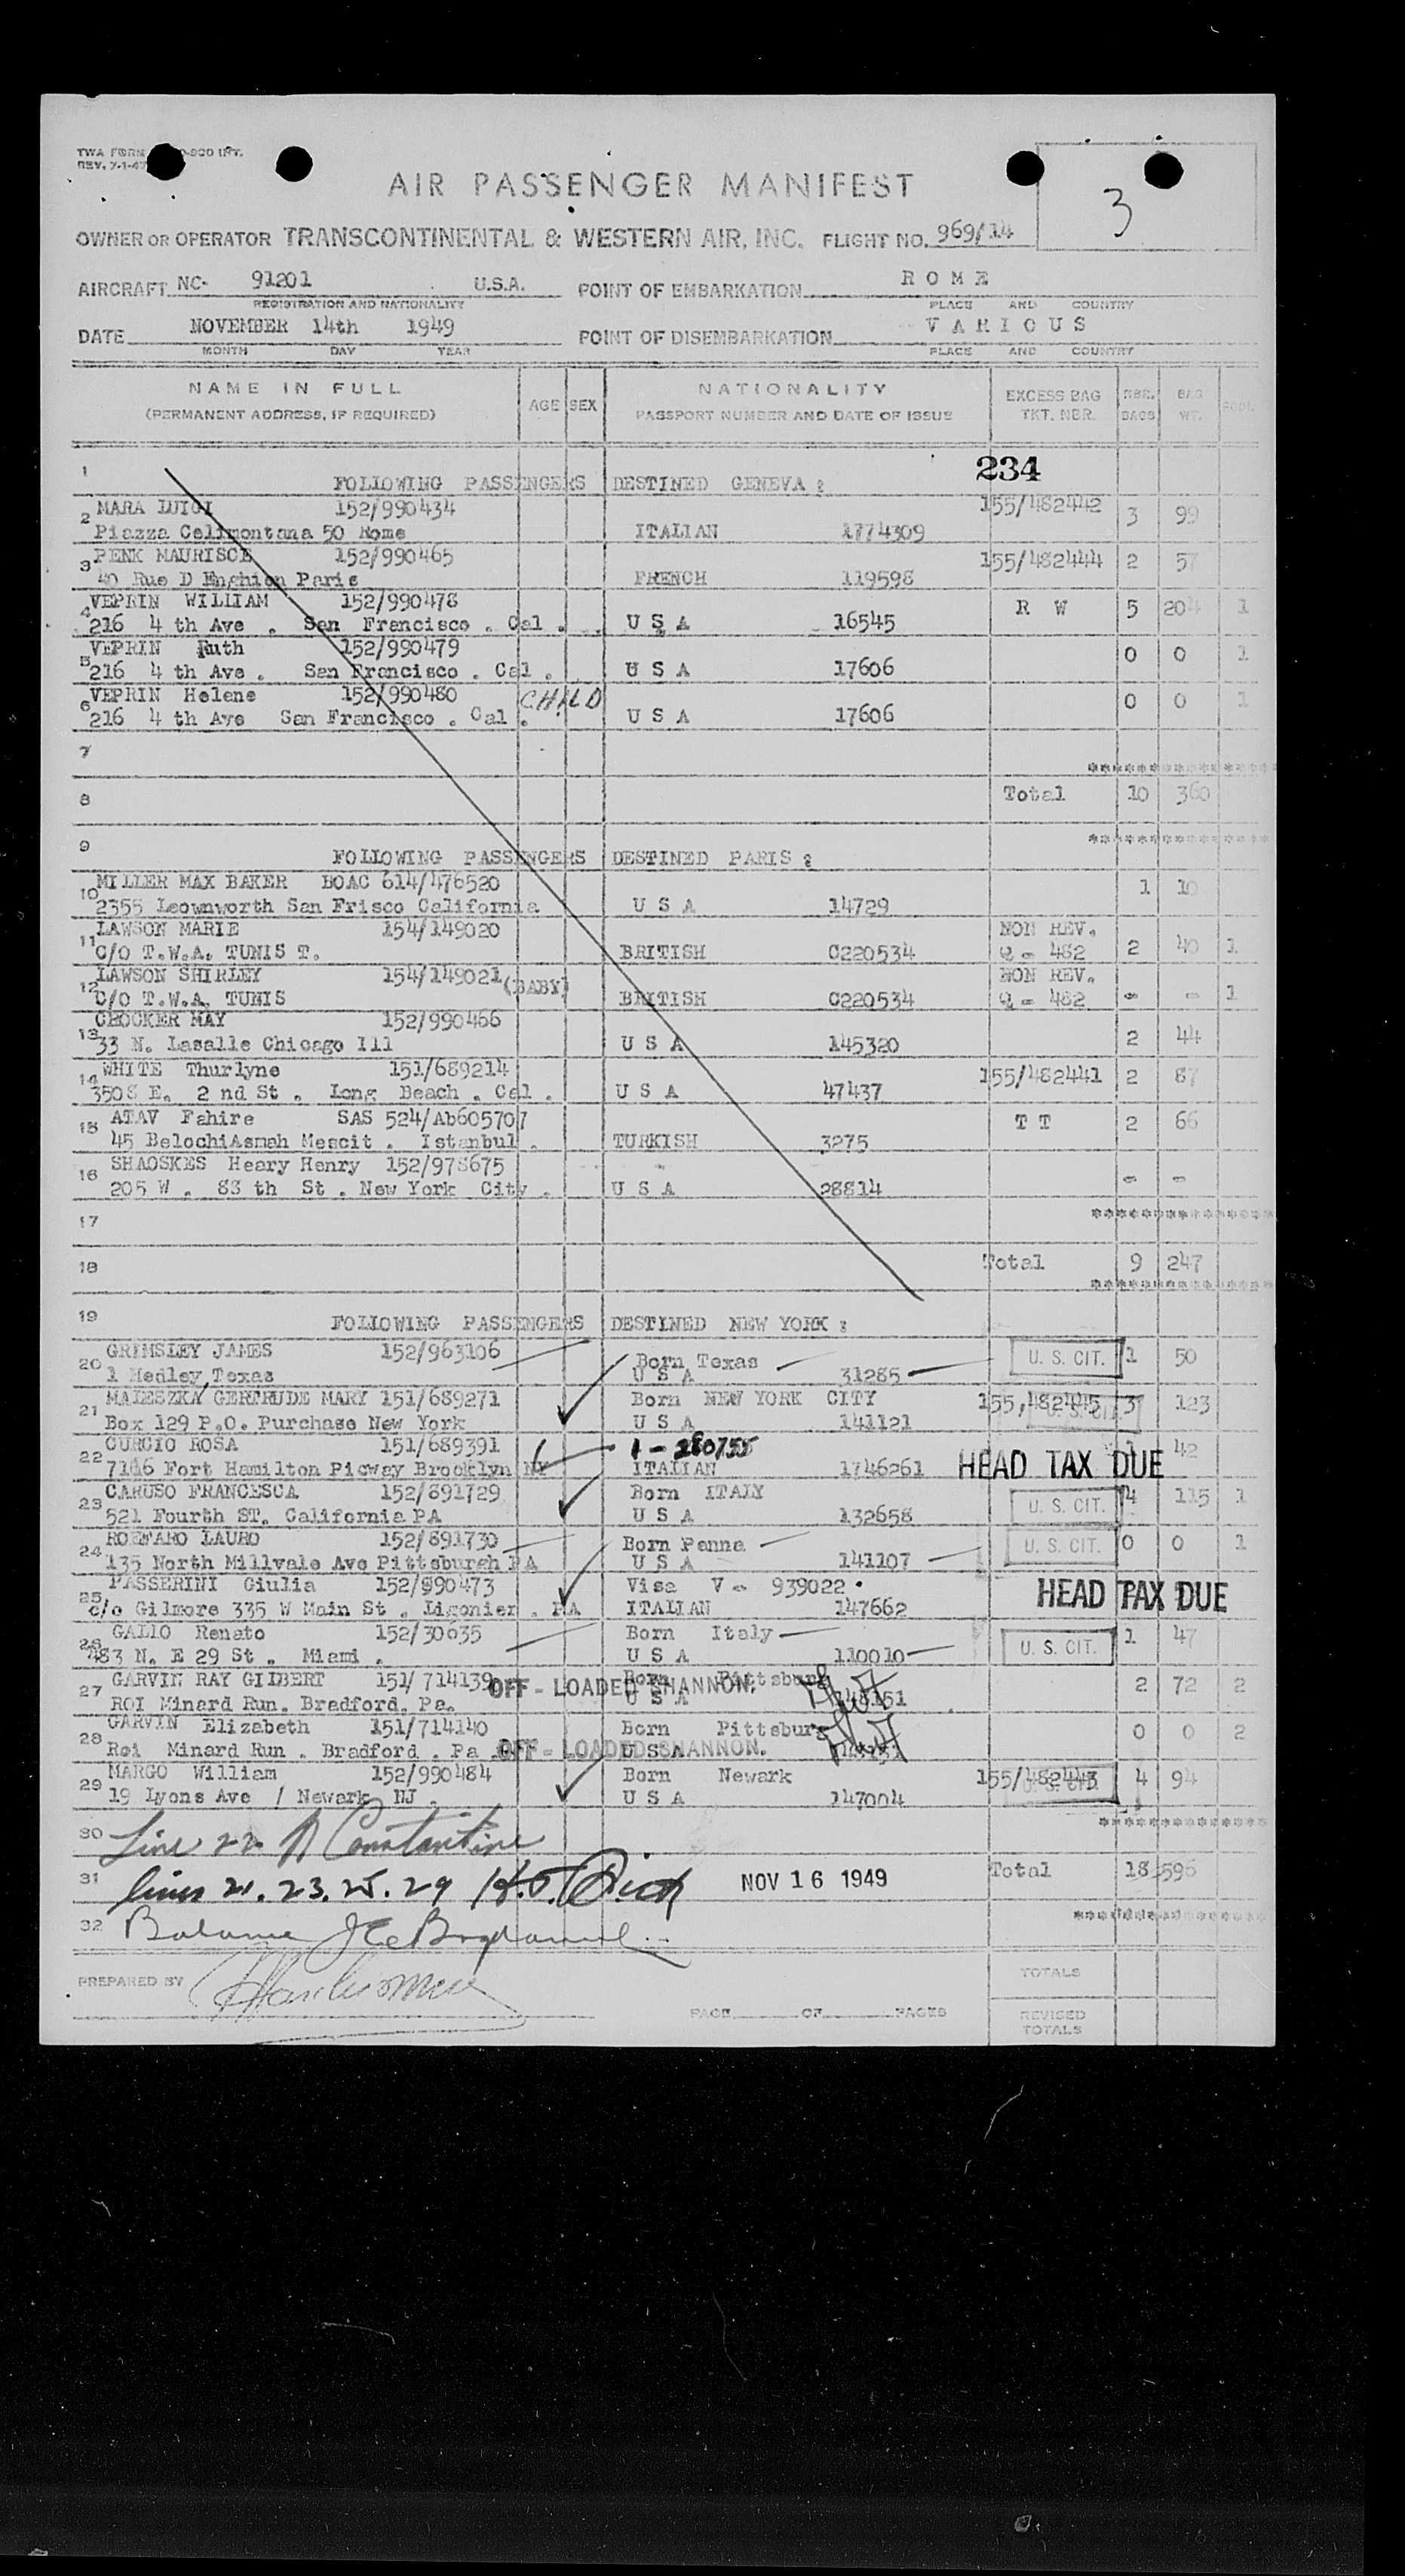 TWA FORM
REV. 7-1-4
AIR PASSENGER MANIFEST
3
OWNER OR OPERATOR TRANSCONTINENTAL & WESTERN AIR, INC. FLIGHT NO. 969/14
AIRCRAFT NC- 91201 U.S.A. POINT OF EMBARKATION ROME
REGISTRATION AND NATIONALITY PLACE AND COUNTRY
DATE NOVEMBER 14th 1949 POINT OF DISEMBARKATION VARIOUS
MONTH DAY YEAR PLACE AND COUNTRY
NAME IN FULL AGE SEX NATIONALITY EXCESS BAG NBR. BAG
(PERMANENT ADDRESS, IF REQUIRED) PASSPORT NUMBER AND DATE OF ISSUE TKT. NBR. BAGS WT.
234
1 FOLLOWING PASSENGERS DESTINED GENEVA :
2 MARA LUIGI 152/990434 155/482442 3 99
Piazza Celimontana 50 Rome ITALIAN 1774309
3 PENK MAURISCE 152/990465 155/482444 2 57
40 Rue D Enghien Paris FRENCH 119598
4 VEPRIN WILLIAM 152/990478 R W 5 204 1
216 4 th Ave . San Francisco . Cal . U S A 16545
5 VEPRIN Ruth 152/990479 0 0 1
216 4 th Ave . San Francisco . Cal . U S A 17606
6 VEPRIN Helene 152/990480 CHILD 0 0 1
216 4 th Ave San Francisco . Cal . U S A 17606
7
8 Total 10 360
9 FOLLOWING PASSENGERS DESTINED PARIS :
10 MILLER MAX BAKER BOAC 614/476520 1 10
2355 Leownworth San Frisco California U S A 14729
11 LAWSON MARIE 154/149020 NON REV.
C/O T.W.A. TUNIS T. BRITISH C220534 Q - 482 2 40 1
12 LAWSON SHIRLEY 154/149021 (BABY) NON REV.
C/O T.W.A. TUNIS BRITISH C220534 Q - 482 - - 1
13 CROCKER MAY 152/990466 2 44
33 N. Lasalle Chicago Ill U S A 145320
14 WHITE Thurlyne 151/689214 155/482441 2 87
3508 E. 2 nd St . Long Beach . Cal . U S A 47437
15 ATAV Fahire SAS 524/Ab605707 T T 2 66
45 BelochiAsmah Mescit . Istanbul . TURKISH 3275
16 SHAOSKES Heary Henry 152/978675 - -
205 W . 83 th St . New York City . U S A 28814
17
18 Total 9 247
19 FOLLOWING PASSENGERS DESTINED NEW YORK :
20 GRIMSLEY JAMES 152/963106 Born Texas U. S. CIT. 1 50
1 Hedley, Texas U S A 31285
21 MALESZKA GERTRUDE MARY 151/689271 Born NEW YORK CITY 155,482445 3 123
Box 129 P.O. Purchase New York U S A 141121
22 CURCIO ROSA 151/689391 1 - 280755 42
7116 Fort Hamilton Picway Brooklyn NY ITALIAN 1746261 HEAD TAX DUE
23 CARUSO FRANCESCA 152/891729 Born ITALY U. S. CIT. 4 115 1
521 Fourth ST. California PA U S A 132658
24 LAURO 152/891730 Born Penna U. S. CIT. 0 0 1
135 North Millvale Ave Pittsburgh PA U S A 141107
25 PASSERINI Giulia 152/990473 Visa V - 939022 HEAD TAX DUE
c/o Gilmore 335 W Main St . Ligonier . PA ITALIAN 147662
26 GALLO Renato 152/30635 Born Italy U. S. CIT. 1 47
483 N. E 29 St . Miami . U S A 110010
27 GARVIN RAY GILBERT 151/714139 OFF - LOADED SHANNON. Born Pittsburg 2 72 2
ROI Minard Run. Bradford. Pa. U S A 148151
28 GARVIN Elizabeth 151/714140 Born Pittsburg 0 0 2
Roi Minard Run . Bradford . Pa . OFF - LOADED SHANNON. U S A
29 MARGO William 152/990484 Born Newark 155/482443 4 94
19 Lyons Ave / Newark NJ . U S A 147004
30 Line 22 A Constantine
31 lines 21. 23. 25. 29 NOV 16 1949 Total 18 596
32 Balance
PREPARED BY
PAGE OF PAGES
TOTALS
REVISED TOTALS